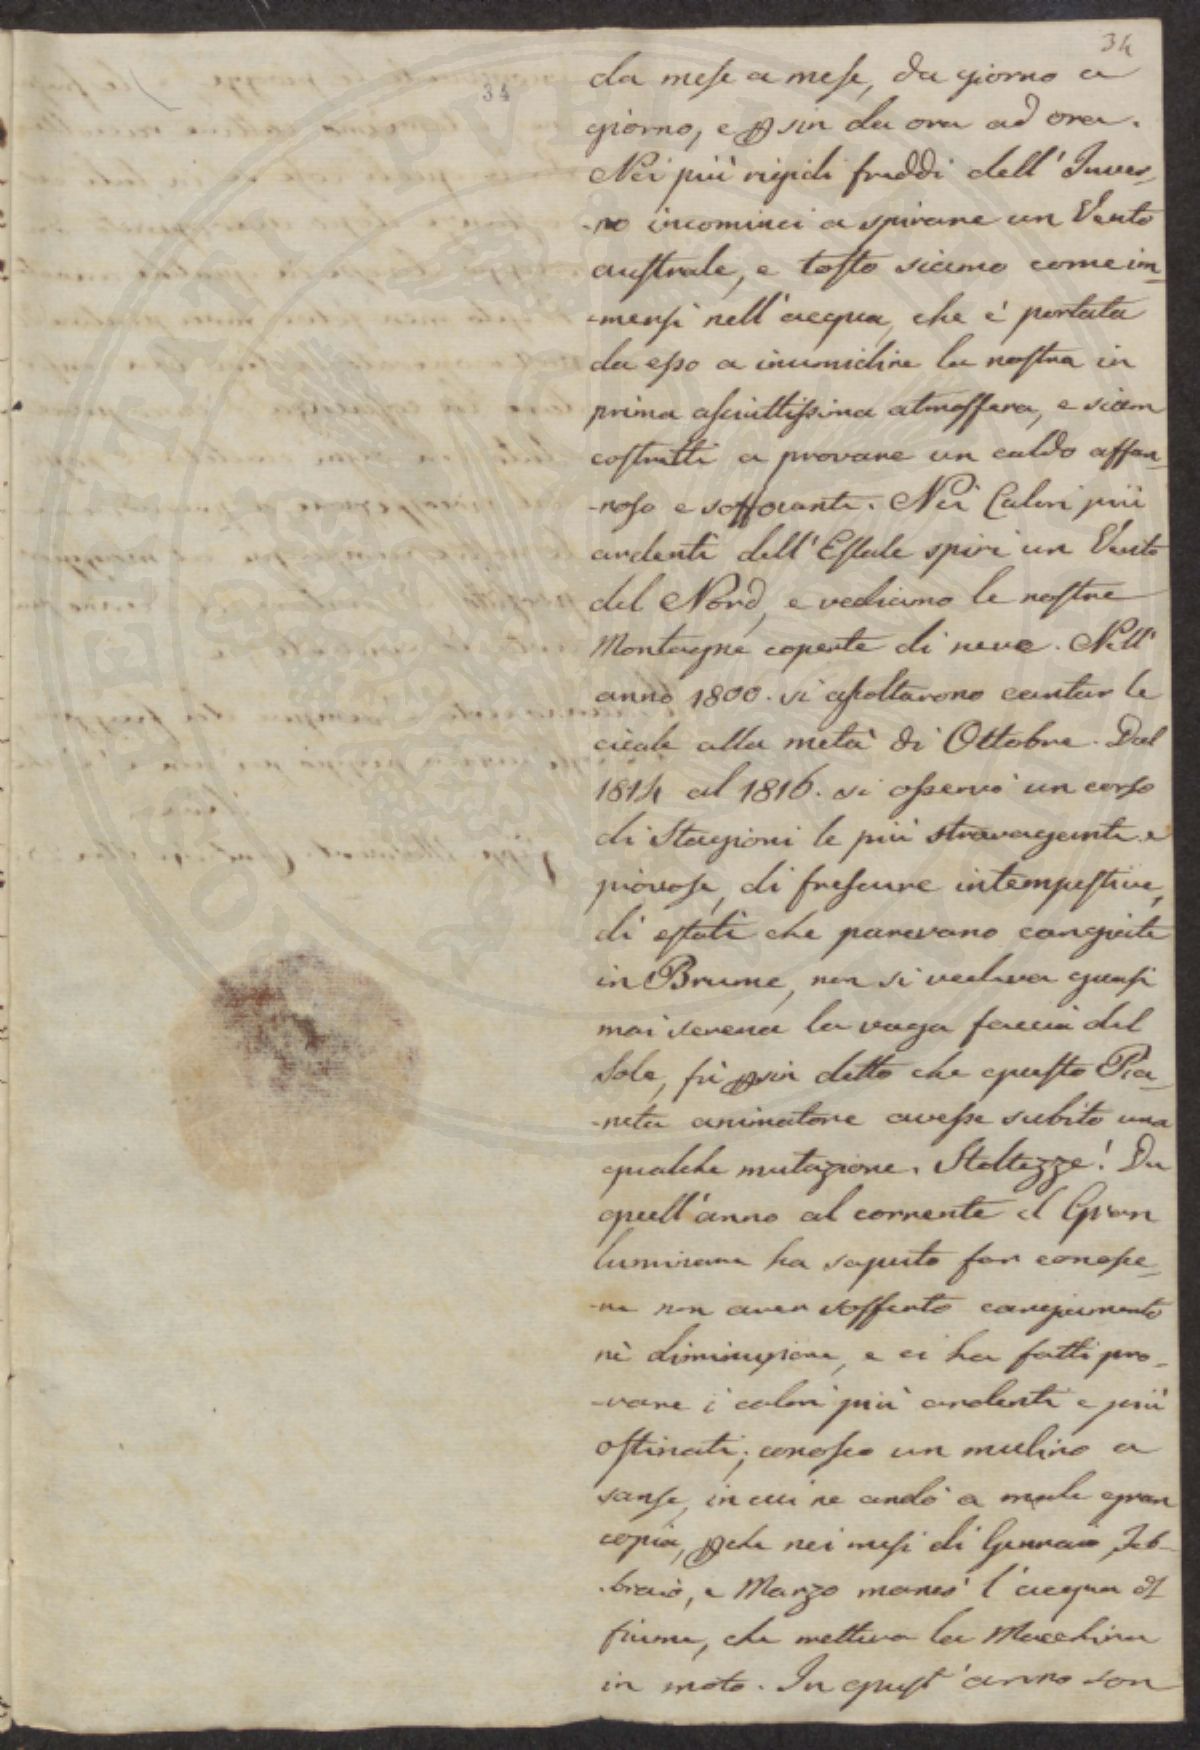 34
34
da mese a mese, da giorno a
giorno, e persin da ora ad ora.
Nei più rigidi freddi dell'Inver-
-no incominci a spirare un Vento
australe, e tosto siamo come im-
-mersi nell'acqua, che è portata
da esso a inumidire la nostra in
prima asciuttissima atmosfera, e siam
costretti a provare un caldo affan-
-noso e soffocante. Nei Calori più
ardenti dell'Estate spiri un Vento
del Nord, e vediamo le nostre
Montagne coperte di neve. Nell'
anno 1800. si ascoltarono cantar le
cicale alla metà di Ottobre. Dal
1814 al 1816. si osservò un corso
di Stagioni le più stravaganti e
piovose, di frescure intempestive,
di estati che parevano cangiate
in Brume, non si vedeva quasi
mai serena la vaga faccia del
Sole, fù persin detto che questo Pia-
-neta animatore avesse subito una
qualche mutazione. Stoltezze! Da
quell'anno al corrente il Gran
luminare ha saputo far conosce-
-re non aver sofferto cangiamento
nè diminuzione, e ci ha fatti pro-
-vare i calori più ardenti e più
ostinati; conosco un mulino a
sanse, in cui ne andò a male gran
copia, perchè nei mesi di Gennaio, Feb-
-braio, e Marzo mancò l'acqua al
fiume, che metteva la Macchina
in moto. In quest'anno son